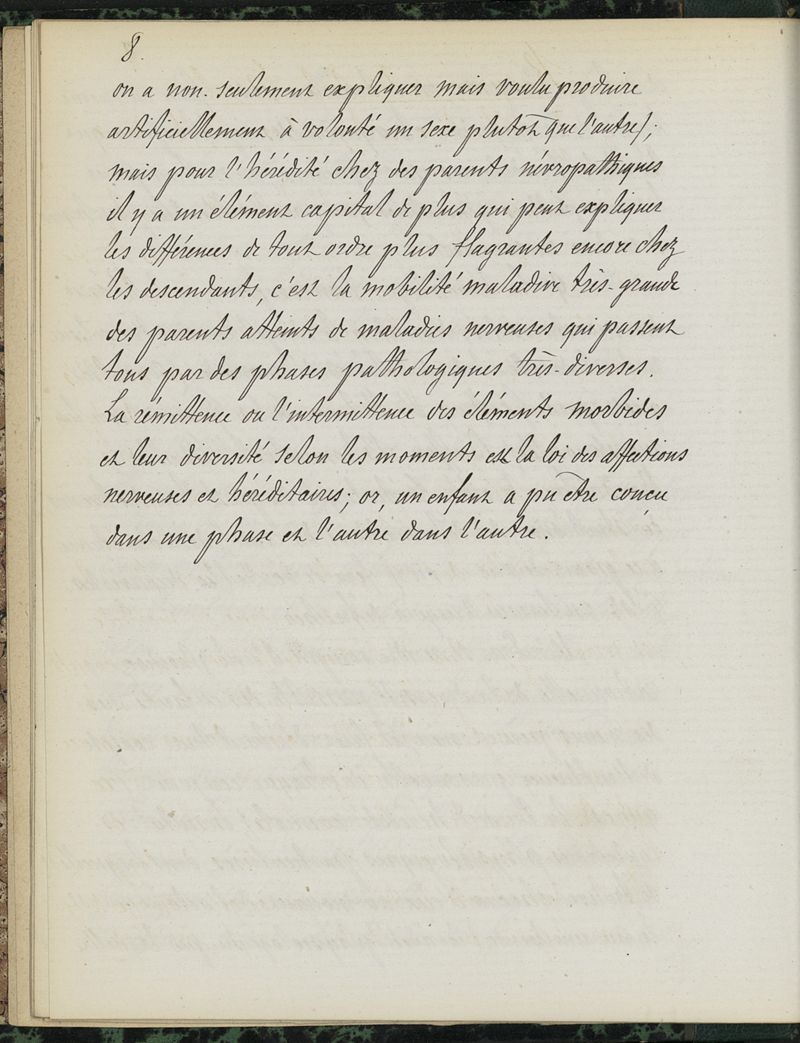 8.
on a non. seulement expliquer mais voulu produire
artificiellement à volonté un sexe plutôt que l'autre);
mais pour l'hérédité chez des parents névropathiques
il y a un élément capital de plus qui peut expliquer
les différences de tout ordre plus flagrantes encore chez
les descendants, c'est la mobilité maladive très-grande
des parents atteints de maladies nerveuses qui passent
tous par des phases pathologiques très-diverses.
La rémittence ou l'intermittence des éléments morbides
et leur diversité selon les moments est la loi des affections
nerveuses et héréditaires; or, un enfant a pu être conçu
dans une phase et l'autre dans l'autre.